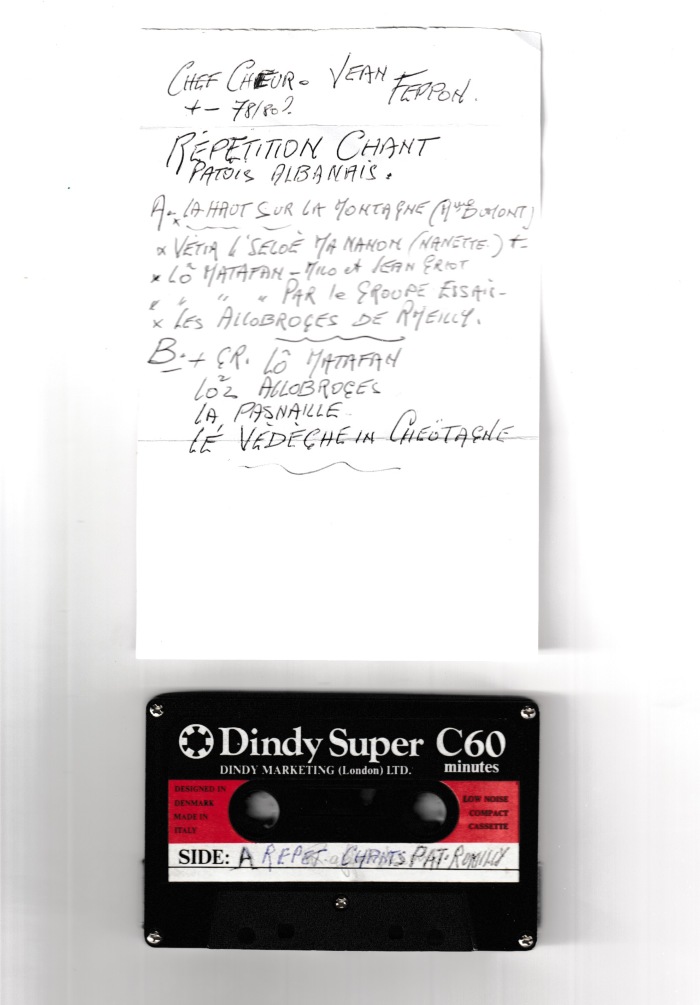 CHEF CHŒUR. JEAN FERRON.
+- 78/80?
RÉPÉTITION CHANT
PATOIS ALBANAIS.
A. x LA HAUT SUR LA MONTAGNE (Mme DUMONT)
x VETIA L'SELOÈ MA NANON (NANETTE.) +-
x LÔ MATAFAN - MILO et JEAN GRIOT
" " " " PAR le GROUPE ESSAIE-
x LES ALLOBROGES DE RMEILLY.
B. + GR. LÔ MATAFAN
LOZ ALLOBROGES
LA PASNAILLE
LÉ VÈDÈCHE IN CHEÖTAGNE
Dindy Super C60
DINDY MARKETING (London) LTD. minutes
DESIGNED IN
DENMARK
MADE IN
ITALY
LOW NOISE
COMPACT
CASSETTE
SIDE: A REPET. CHANTS PAT. RUMILLY